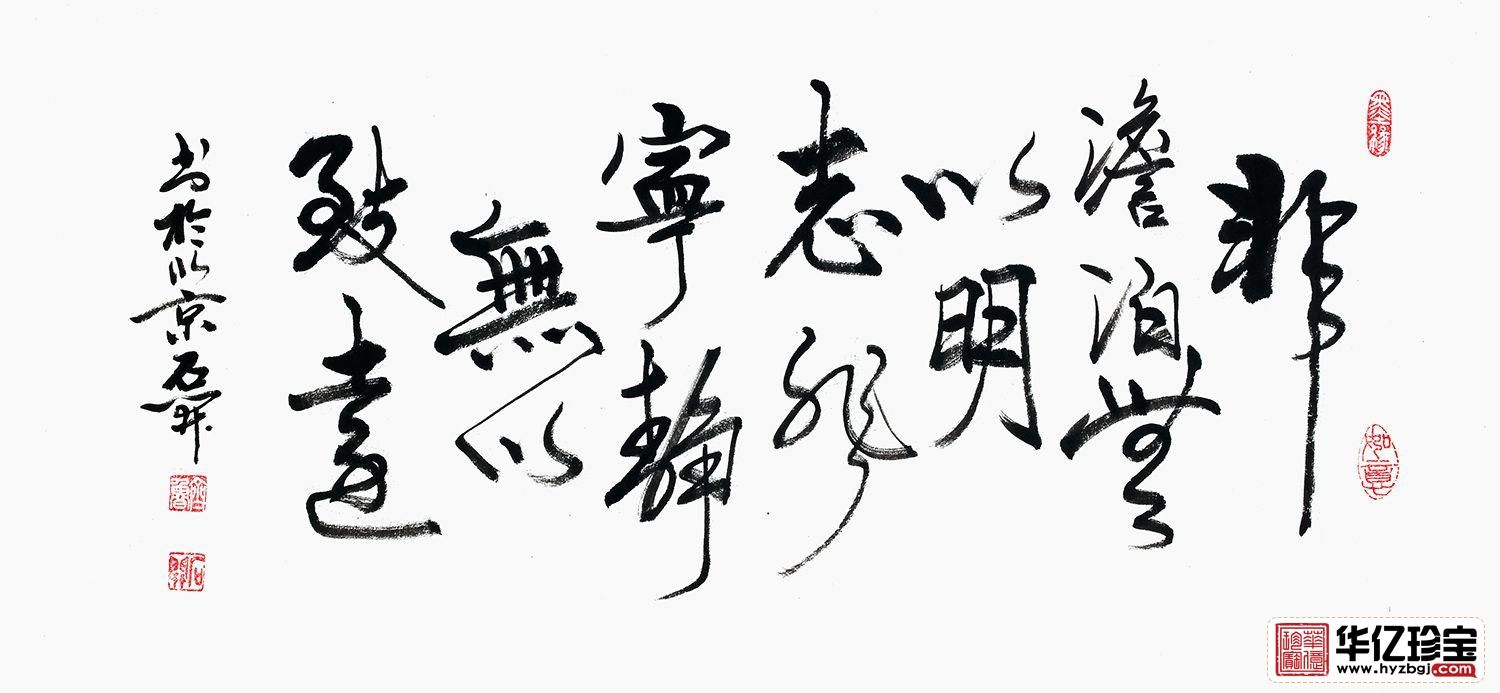 非
澹泊無
以明
志非
寧靜
無以
致遠
书於北京石开
如意
华亿珍宝
www.hyzbgj.com